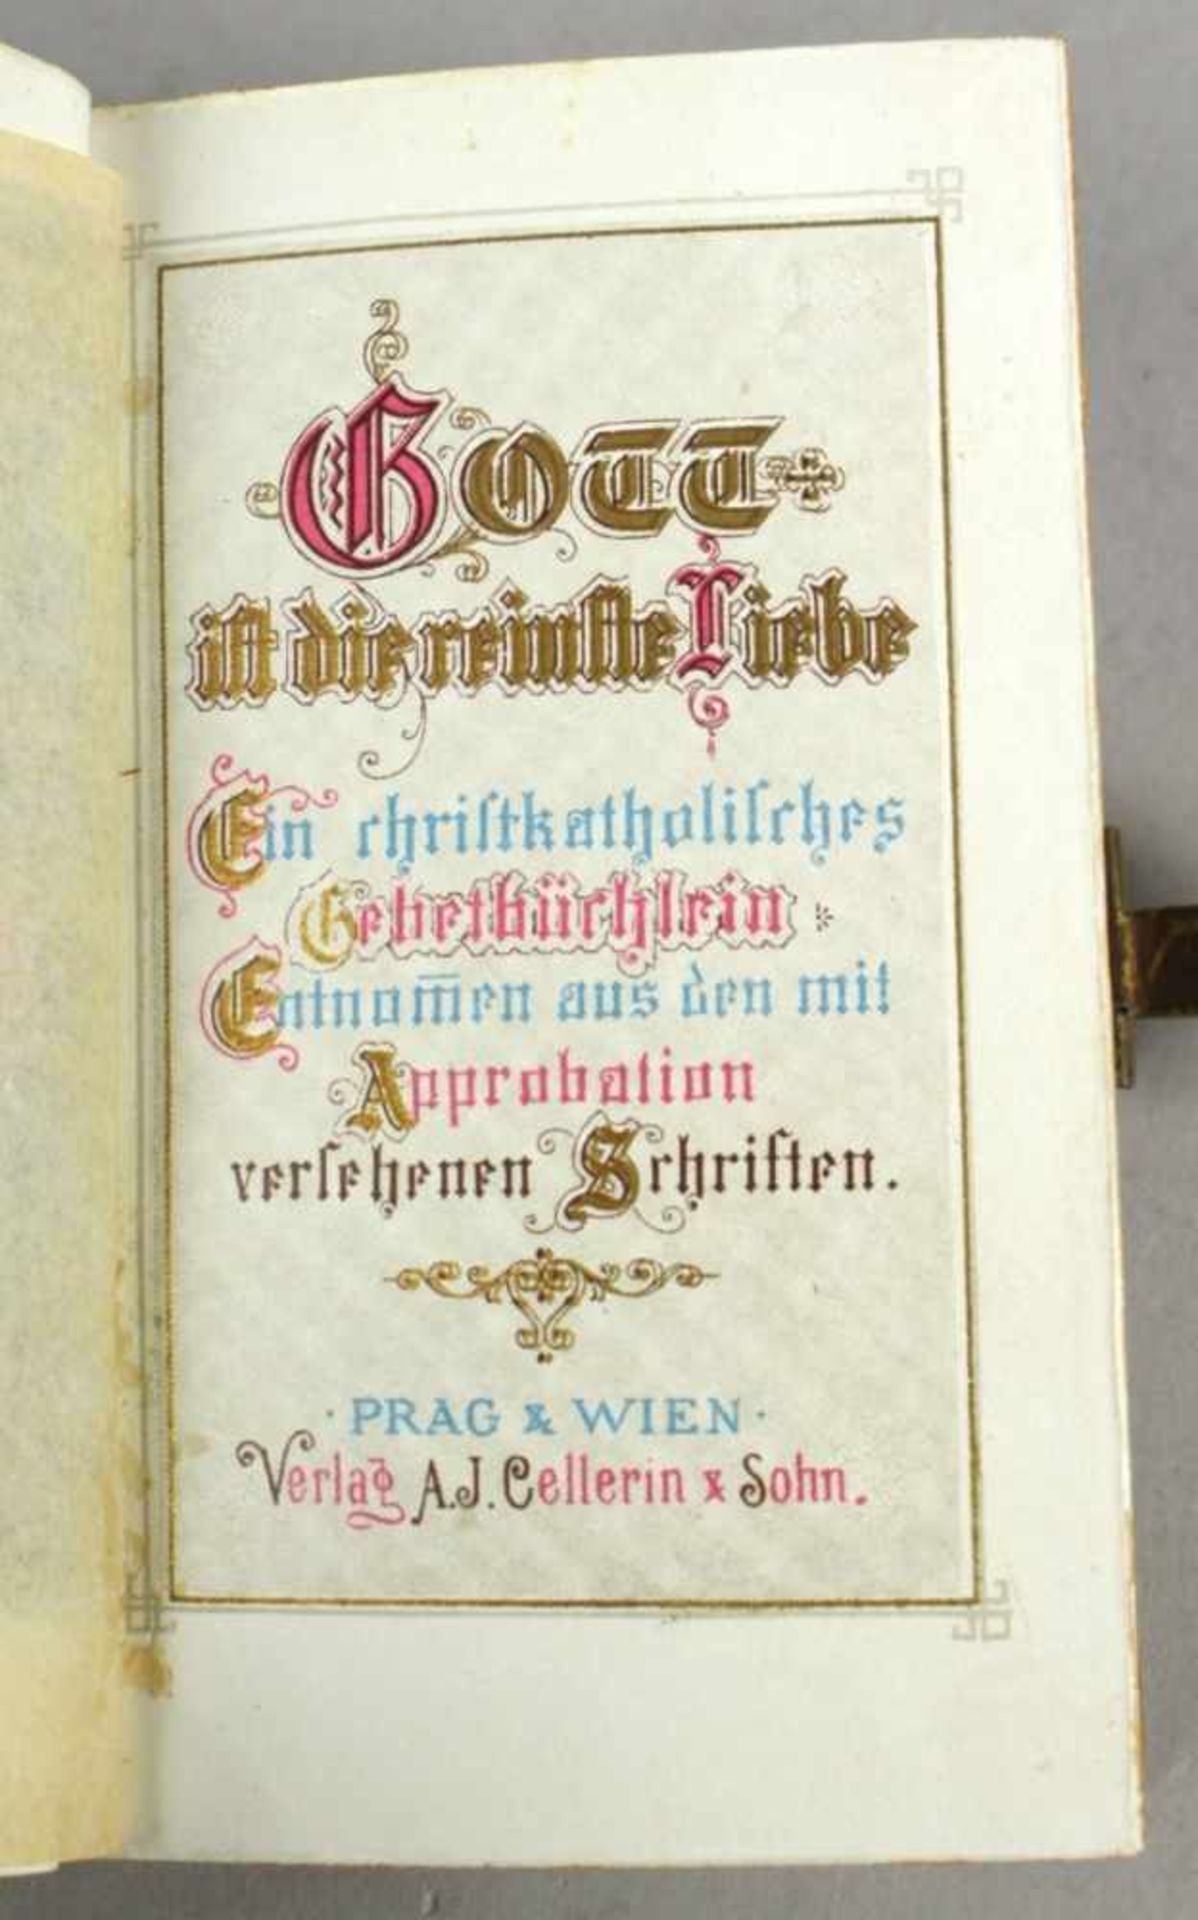 Gott
ist die reinste Liebe
Ein christkatholisches
Gebetbüchlein
Entnom̅en aus den mit
Approbation
versehenen Schriften.
· PRAG & WIEN ·
Verlag A.J. Cellerin & Sohn.